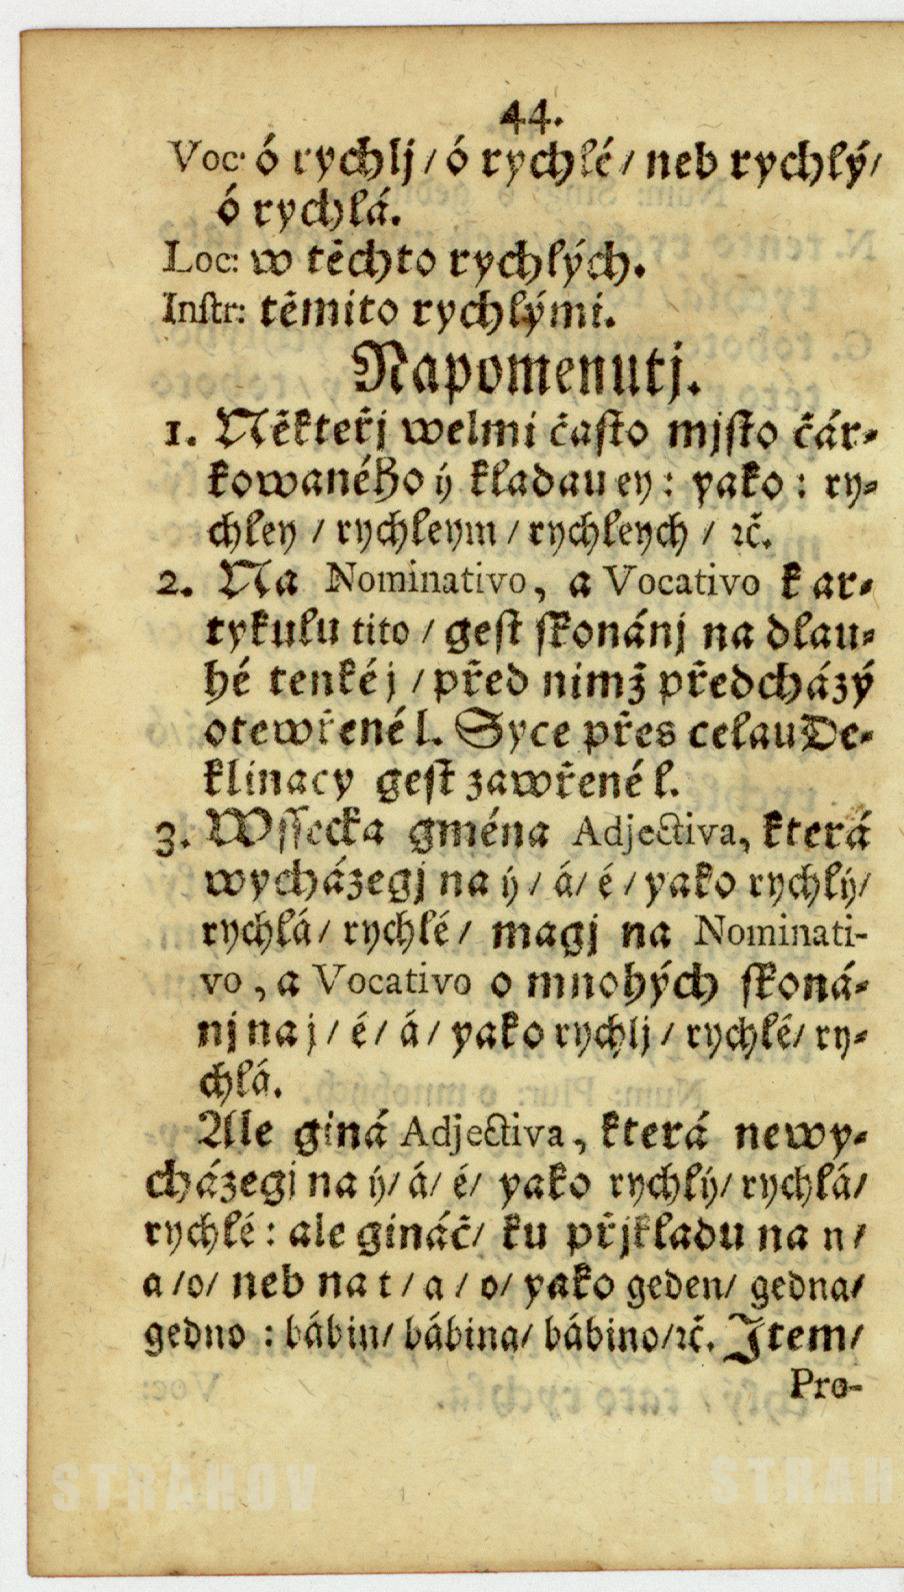 44.
Voc: ó rychlj / ó rychlé / neb rychlý /
ó rychlá.
Loc: w těchto rychlých.
Instr: těmito rychlými.
Napomenutj.
1. Někteřj welmi často mjsto čár⸗
kowaného ý kladau ey : yako : ry⸗
chley / rychleym / rychleych / ꝛč.
2. Na Nominativo, a Vocativo k ar⸗
tykulu tito / gest skonánj na dlau⸗
hé tenké j / před nimž předcházý
otewřené l. Syce přes celau De⸗
klinacy gest zawřené ł.
3. Wssecka gména Adjectiva, která
wycházegj na ý / á / é / yako rychlý /
rychlá / rychlé / magj na Nominati-
vo, a Vocativo o mnohých skoná⸗
nj na j / é / á / yako rychlj / rychlé / ry⸗
chlá.
Ale giná Adjectiva, která newy⸗
cházegj na ý / á / é / yako rychlý / rychlá /
rychlé : ale gináč / ku přjkladu na n /
a / o / neb na t / a / o / yako geden / gedna /
gedno : bábin / bábina / bábino / ꝛč. Jtem /
Pro-
STRAHOV
STRAH